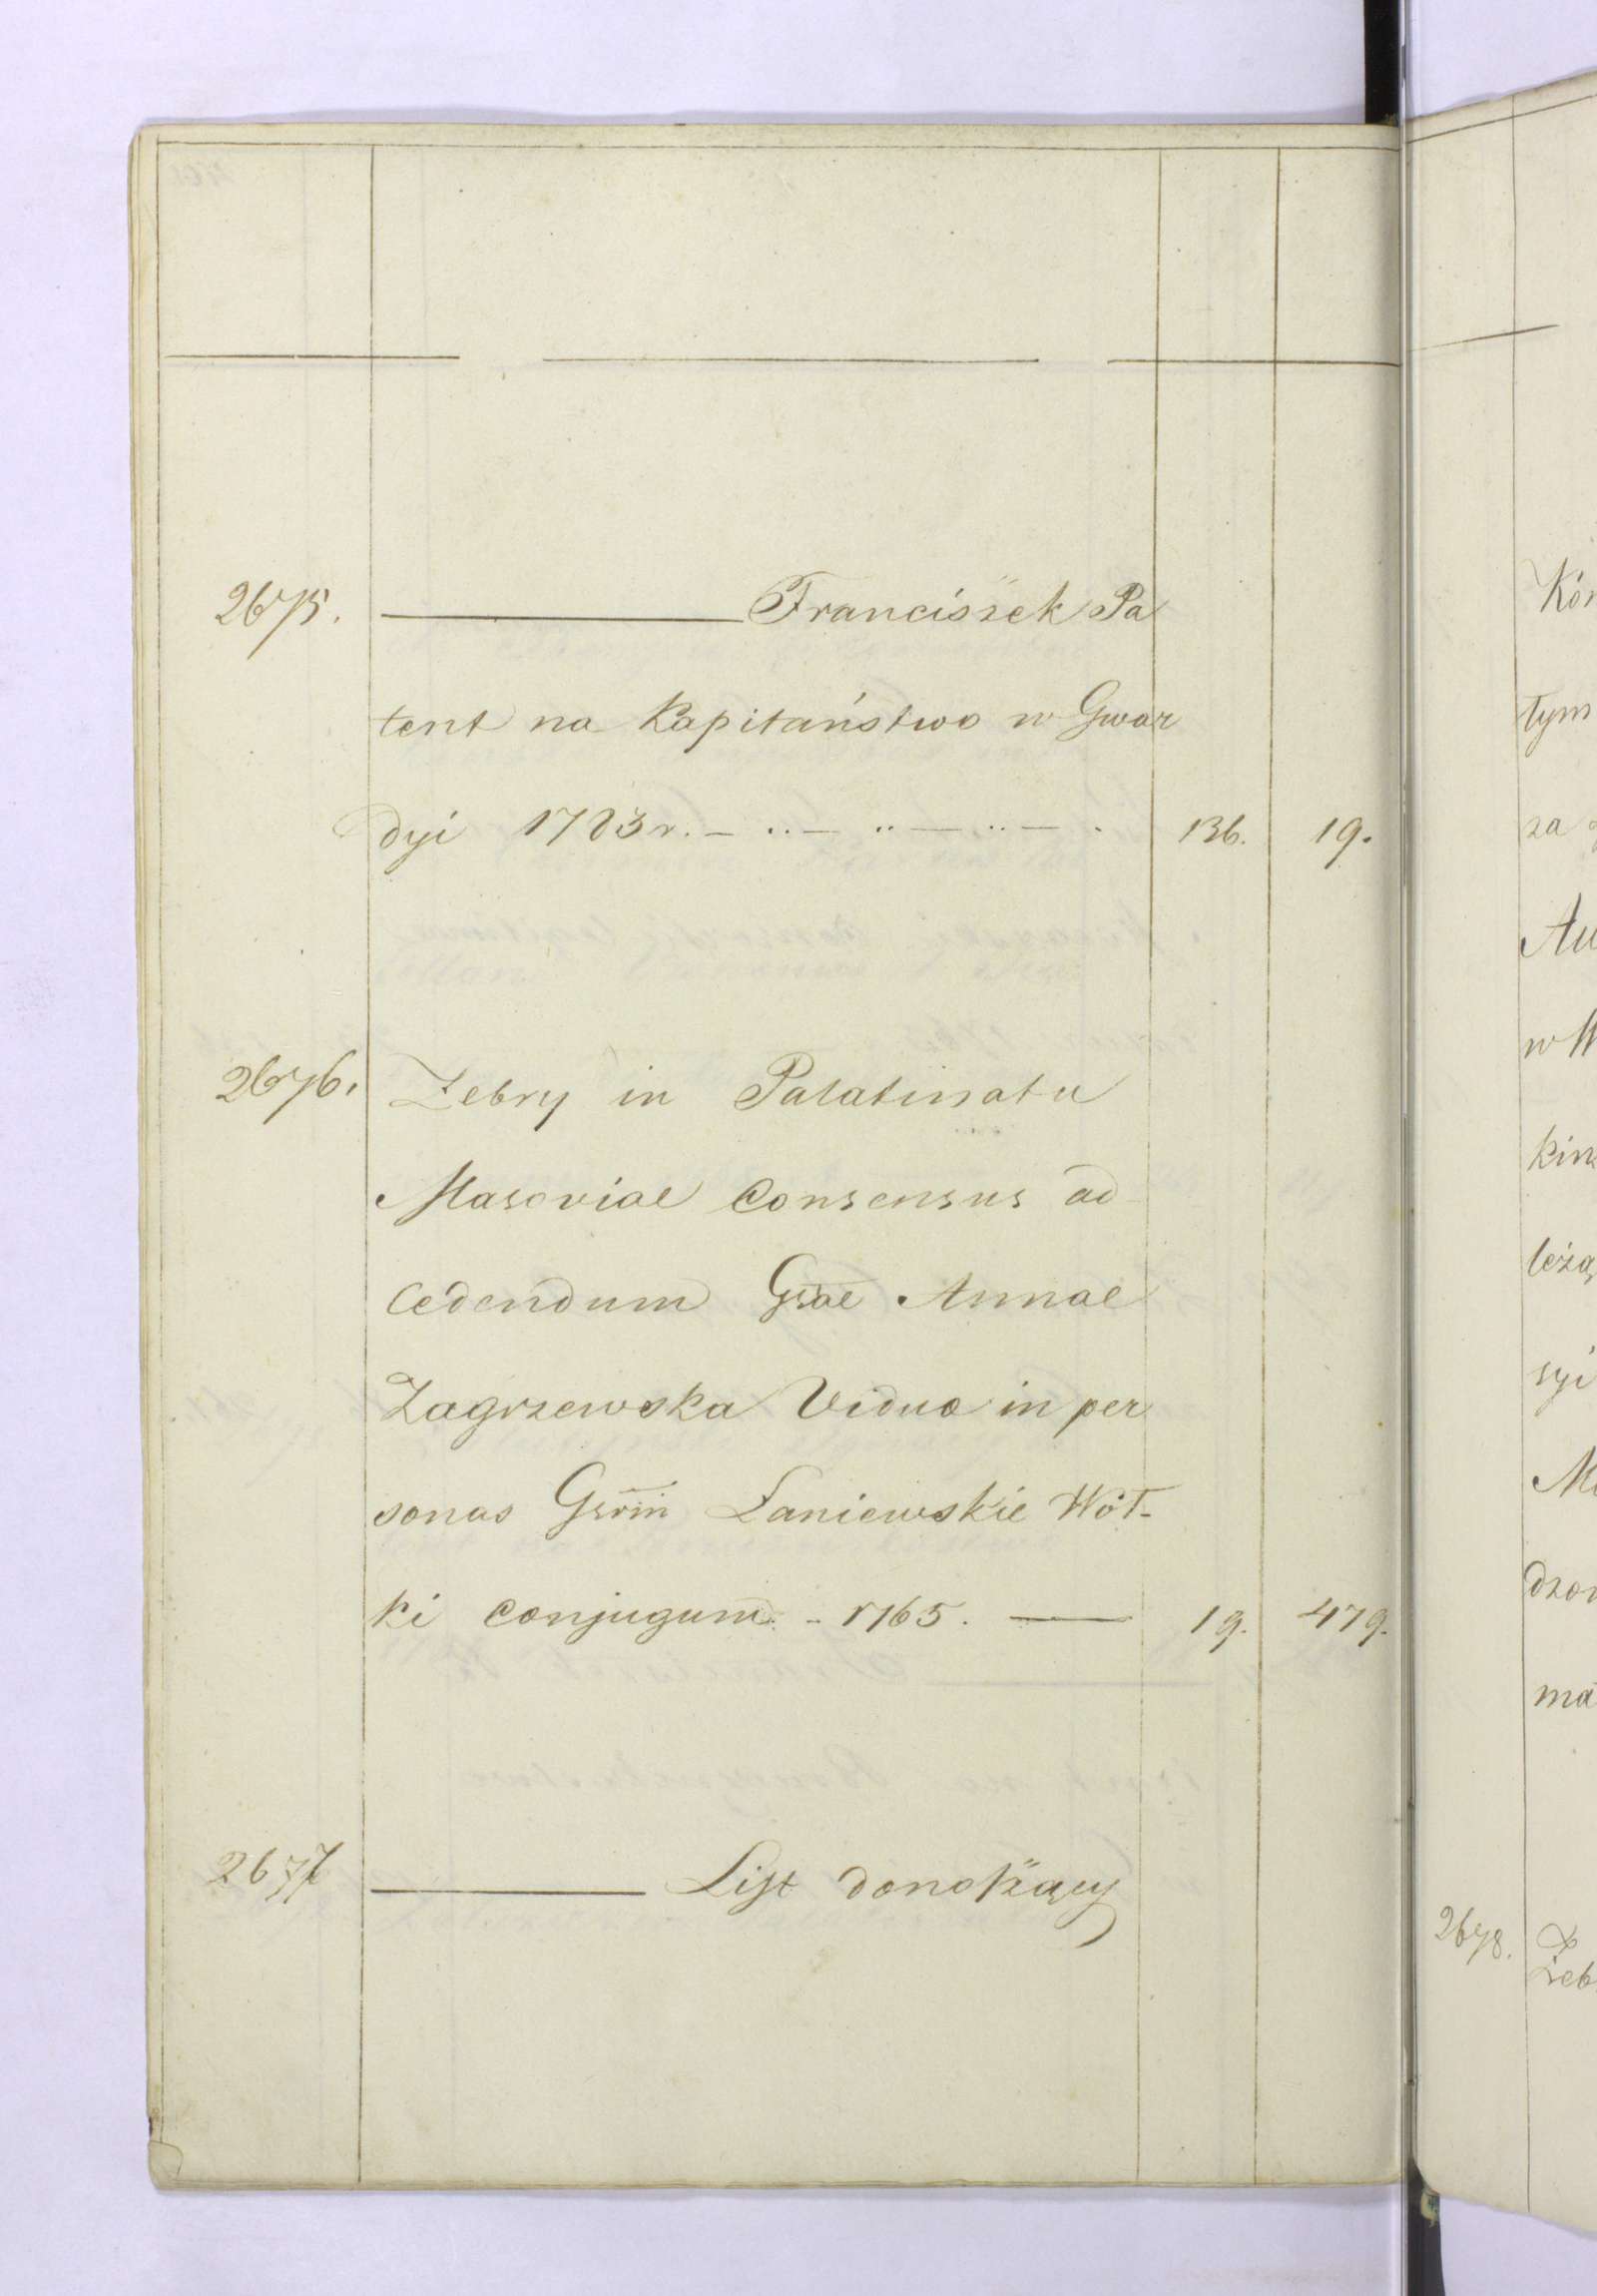 2675. Franciszek Pa
tent na Kapitaństwo w Gwar
dyi 1783 r. 136. 19.
2676. Zebry in Palatinatu
Masoviae Consensus ad
cedendum Gsae Annae
Zagrzewska Vidua in per
sonas Gsrm Łaniewskie Wół-
ki conjugum - 1765. 19. 479.
2677 List donoszący
Kón
tym
za
Au
w W
kim
leżą
syi
dzon
ma
2678. Żeb